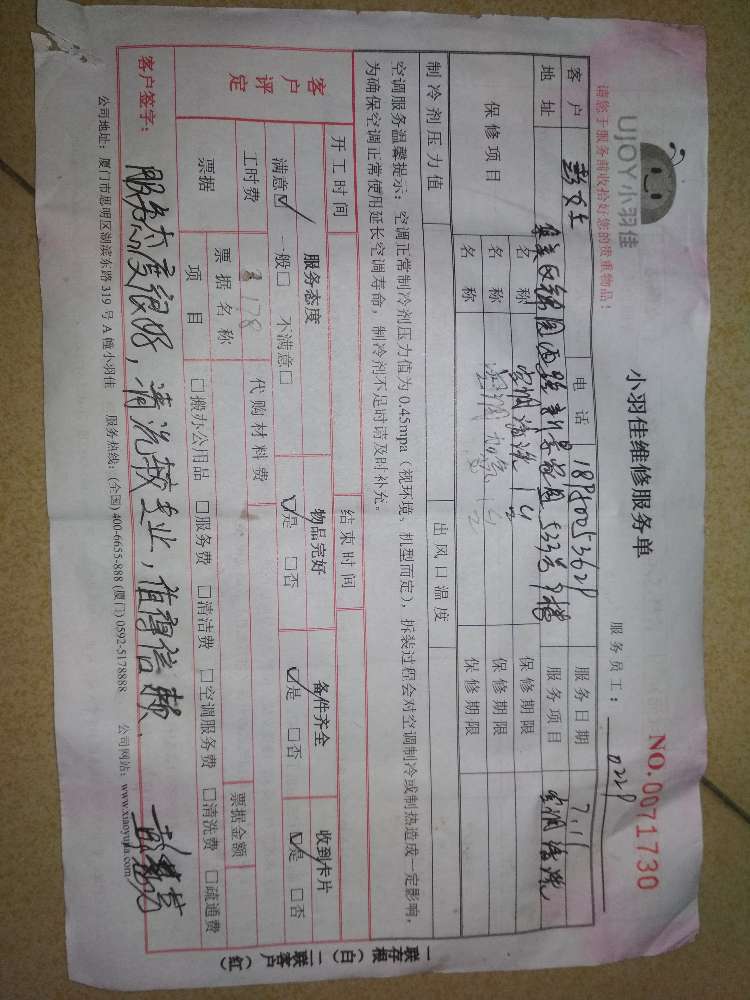 请您于服务前收拾好您的贵重物品!
UJOY小羽佳
小羽佳维修服务单
NO.0071730
服务员工: 0229
客户 彭女士 电话 18980053629 服务日期 7.11
地址 服务项目 空调清洗
保修项目 名称 空调清洗1台 保修期限
名称 空调加氟1台 保修期限
名称 保修期限
制冷剂压力值 出风口温度
空调服务温馨提示:空调正常制冷剂压力值为0.45mpa(视环境,机型而定),拆装过程会对空调制冷或制热造成一定影响,
为确保空调正常使用延长空调寿命,制冷剂不足时请及时补充。
开工时间 结束时间
客户评定 服务态度 物品完好 备件齐全 收到卡片
满意☑ 一般□ 不满意□ ☑是 □否 ☑是 □否 ☑是 □否
工时费 178 代购材料费
票据 票据名称 票据金额
项目 □搬办公用品 □服务费 □清洁费 □空调服务费 □清洗费 □疏通费
客户签字: 服务态度很好,清洗较专业,值得信赖.
公司地址:厦门市思明区湖滨东路319号A幢小羽佳 服务热线:(全国)400-6655-888 (厦门)0592-5178888 公司网站:www.xiaoyujia.com
一联存根(白)二联客户(红)